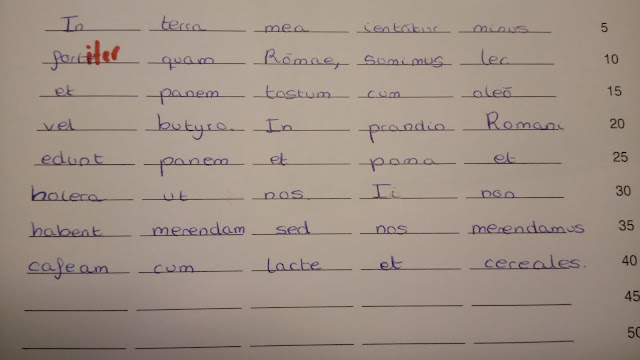 In terra mea ientātur minus 5
fortiter quam Rōmae, sumimus lac 10
et panem tostum cum oleō 15
vel butyro. In prandio Romani 20
edunt panem et poma et 25
holera ut nos. Ii non 30
habent merendam sed nos merendamus 35
cafeam cum lacte et cereales. 40
45
50